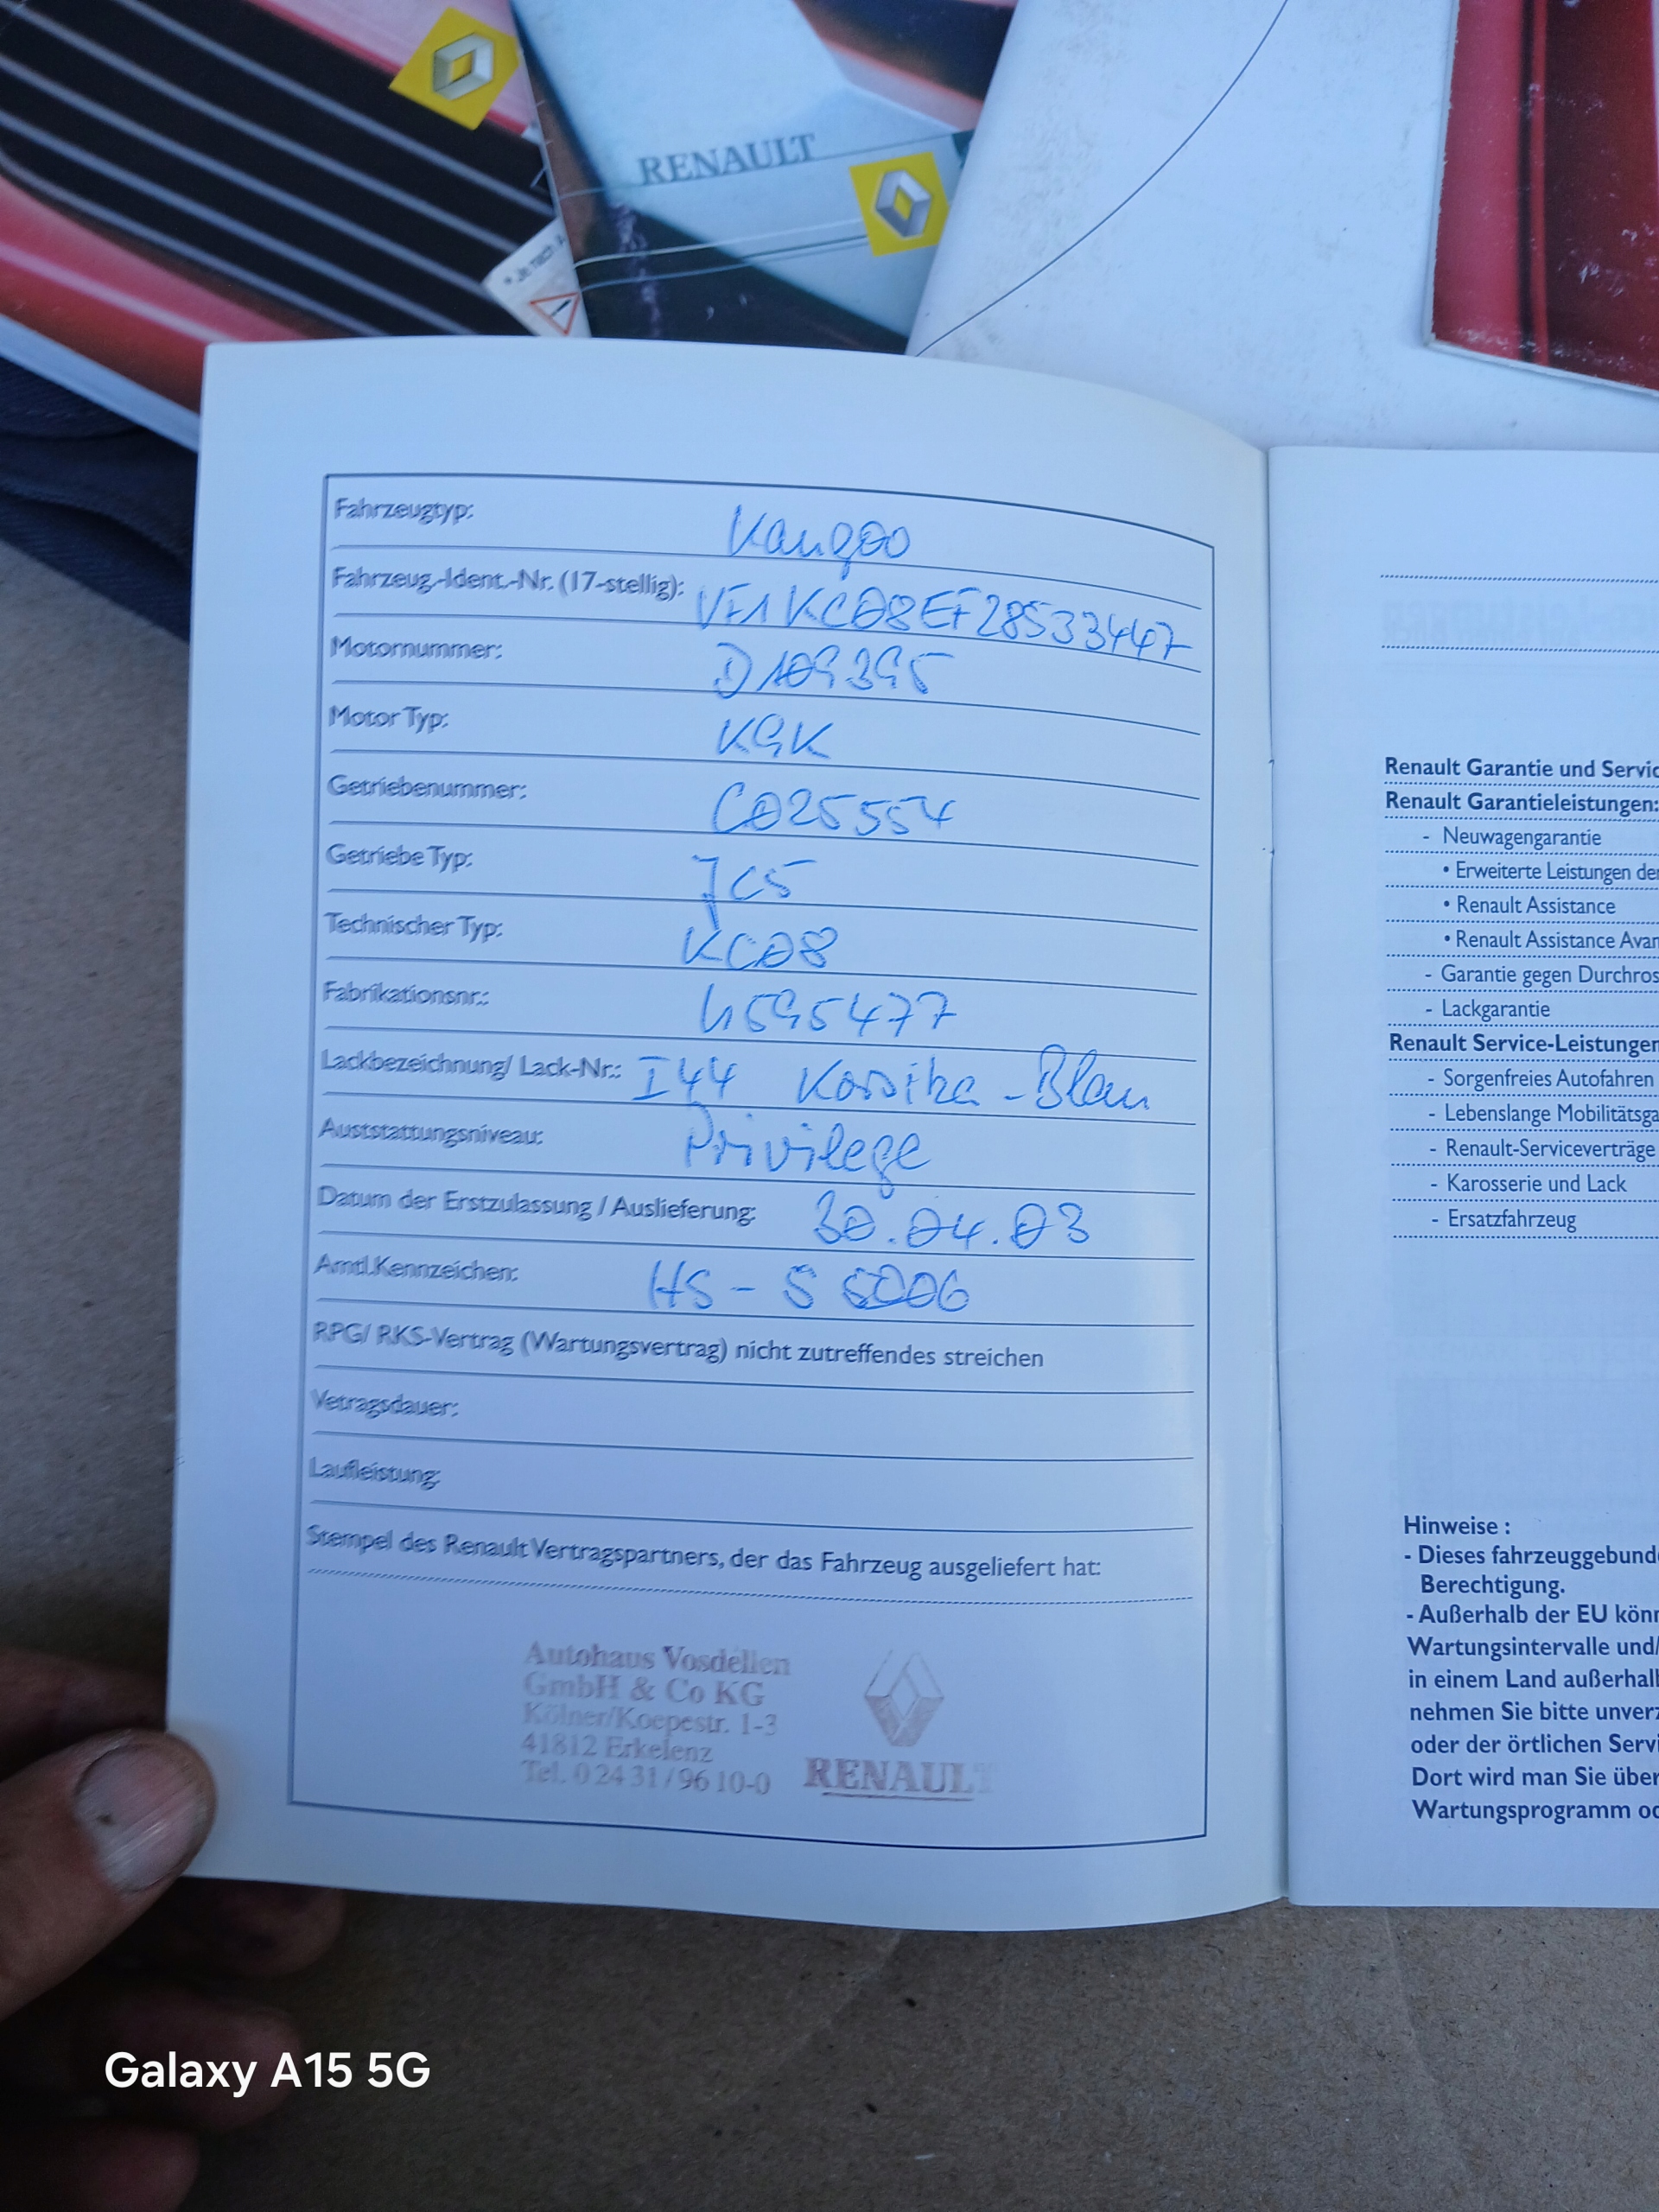 RENAULT
* Je nach A
Fahrzeugtyp: Kangoo
Fahrzeug.-Ident.-Nr. (17-stellig): VF1KC08EF28533447
Motornummer: D109395
Motor Typ: K9K
Getriebenummer: C025554
Getriebe Typ: JC5
Technischer Typ: KC08
Fabrikationsnr.: h595477
Lackbezeichnung/ Lack-Nr.: I44 Korsika-Blau
Auststattungsniveau: Privilege
Datum der Erstzulassung / Auslieferung: 30.04.03
Amtl.Kennzeichen: HS - S 5006
RPG/ RKS-Vertrag (Wartungsvertrag) nicht zutreffendes streichen
Vetragsdauer:
Laufleistung:
Stempel des Renault Vertragspartners, der das Fahrzeug ausgeliefert hat:
Autohaus Vosdellen
GmbH & Co KG
Kölner/Koepestr. 1-3
41812 Erkelenz
Tel. 0 24 31 / 96 10-0
RENAULT
Renault Garantie und Servic
Renault Garantieleistungen:
- Neuwagengarantie
• Erweiterte Leistungen der
• Renault Assistance
• Renault Assistance Avan
- Garantie gegen Durchros
- Lackgarantie
Renault Service-Leistungen
- Sorgenfreies Autofahren
- Lebenslange Mobilitätsga
- Renault-Serviceverträge
- Karosserie und Lack
- Ersatzfahrzeug
Hinweise :
- Dieses fahrzeuggebunde
Berechtigung.
- Außerhalb der EU könn
Wartungsintervalle und/
in einem Land außerhalb
nehmen Sie bitte unverz
oder der örtlichen Servi
Dort wird man Sie über
Wartungsprogramm od
Galaxy A15 5G